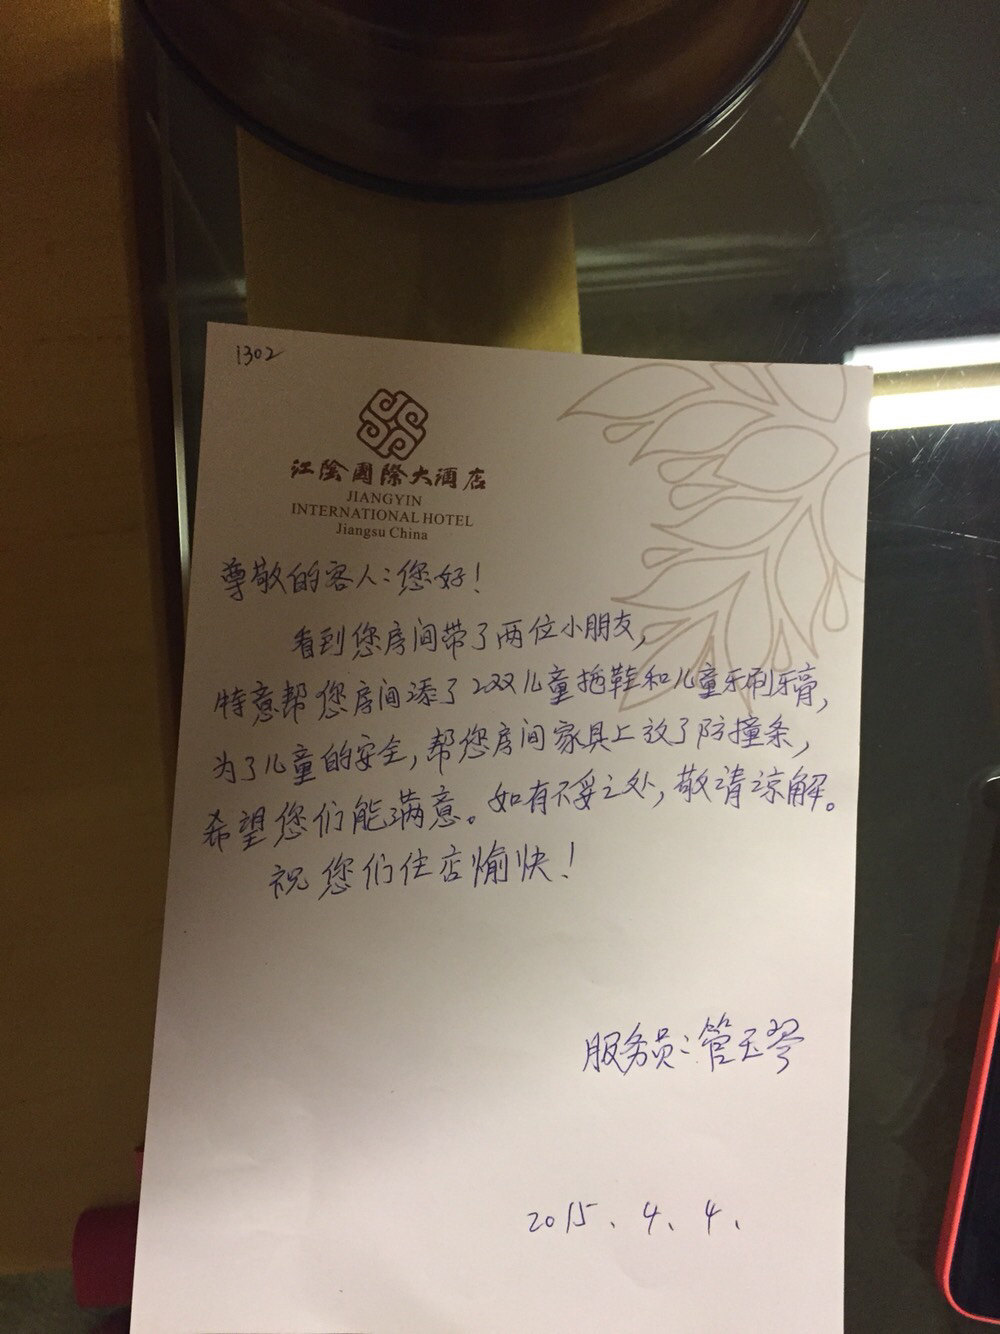 1302
江陰國際大酒店
JIANGYIN
INTERNATIONAL HOTEL
Jiangsu China
尊敬的客人:您好!
看到您房间带了两位小朋友,
特意帮您房间添了2双儿童拖鞋和儿童牙刷牙膏,
为了儿童的安全,帮您房间家具上放了防撞条,
希望您们能满意。如有不妥之处,敬请谅解。
祝您们住店愉快!
服务员:管玉琴
2015、4、4、